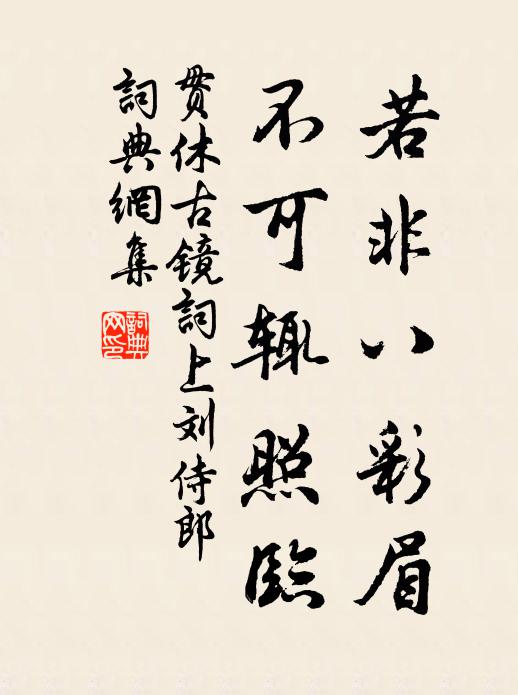 若非八彩眉
不可辄照臨
贯休古镜詞上刘侍郎
詞典網集
詞典
网印